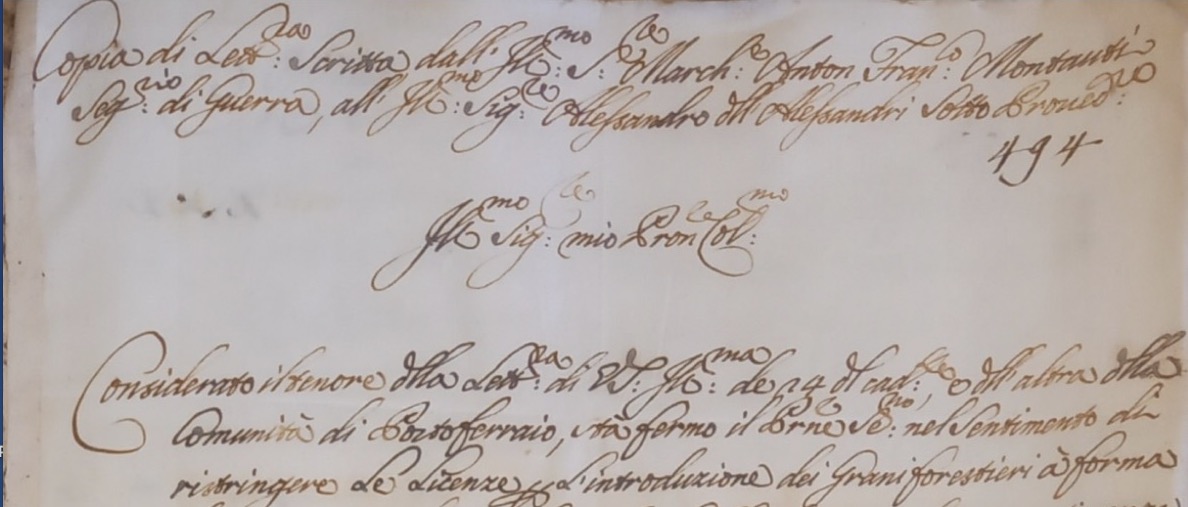 Copia di Lett:ra Scritta dall' Ill:mo S:re March:e Anton Fran:co Montauti
Seg:rio di Guerra, all' Ill:mo Sig:re Alessandro dell Alessandri Sotto Proved:re
494
Ill:mo Sig:re mio Pron Col:mo
Considerato il tenore della Lett:ra di VS: Ill:ma de 24 del cad:te, e dell' altra della
Comunità di Portoferraio, stà fermo il Prne Se:mo nel Sentimento di
ristringere Le Licenze p L'introduzione dei Grani forestieri à forma